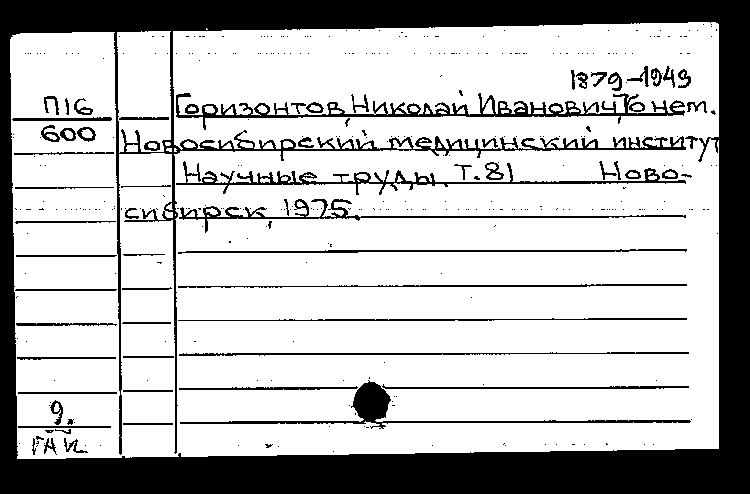 1879-1949
П16 Горизонтов, Николай Иванович, о нем.
600 Новосибирский медицинский институт
Научные труды. Т.81 Ново-
сибирск, 1975.
9.